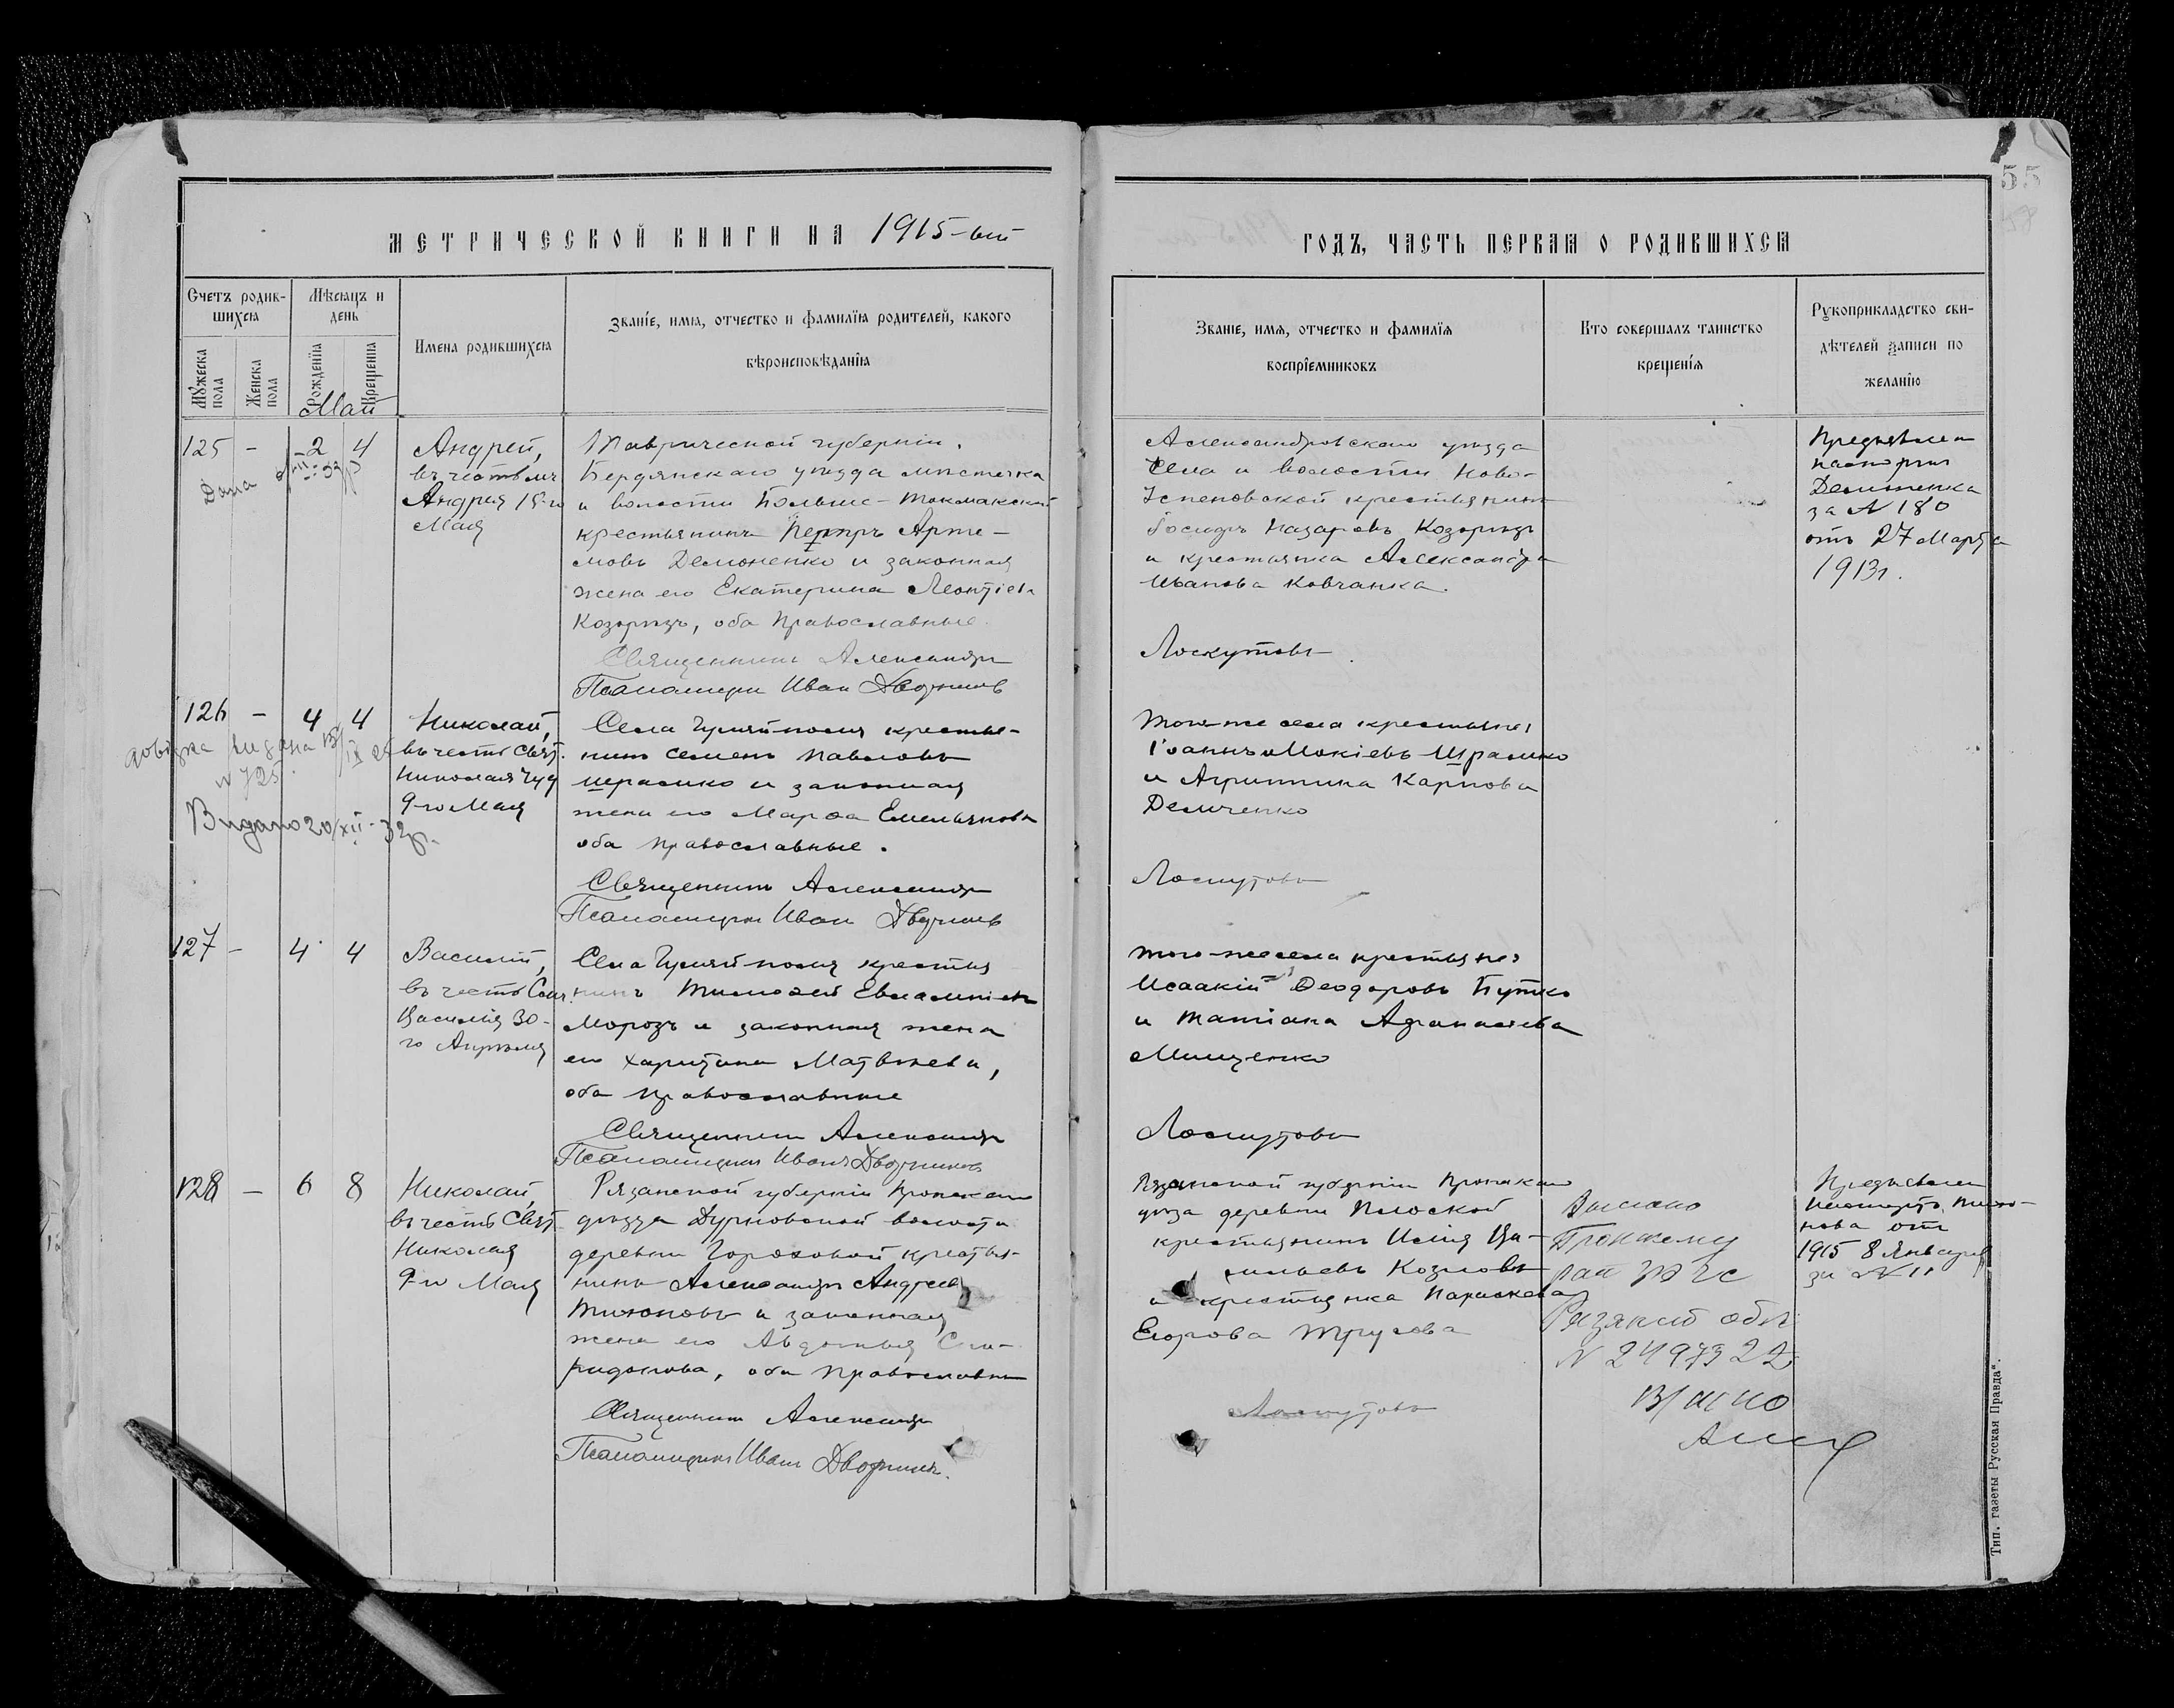 МЕТРИЧЕСКОЙ КНИГИ НА 1915-ый
Счетъ родив-
шихся
Мѣсяцъ и
день
Имена родившихся
Званіе, имя, отчество и фамилія родителей, какого
вѣроисповѣданія
Мужеска
пола
Женска
пола
Рожденія
Крещенія
Май
125 - 2 4
Дана
Андрей,
въ честь мч
Андрея 15-го
Мая
Таврической губерніи,
Бердянскаго уѣзда мѣстечка
и волости Больше-Токмакской
крестьянинъ Петръ Арте-
мовъ Демоненко и законная
жена его Екатерина Леонтіева
Козоризъ, оба Православные.
Священникъ Александръ
Псаломщикъ Иван Дворников
126 - 4 4
довідка видана
N 725
Видано 20/XII-32р.
Николай,
въ честь Свят.
Николая Чуд
9-го Мая
Села Гуляй-поля крестья-
нинъ Семенъ Павловъ
Шрамко и законная
жена его Марѳа Емельянова
оба православные.
Священникъ Александръ
Псаломщикъ Иван Дворников
127 - 4 4
Василій,
въ честь Свщ.
Василія 30-
го Апрѣля
Села Гуляй-поля крестья
нинъ Тимоѳей Евлампіевъ
Морозъ и законная жена
его Харитина Матвѣева,
оба православные
Священникъ Александръ
Псаломщикъ Иванъ Дворников
128 - 6 8
Николай,
въ честь Свят.
Николая
9-го Мая
Рязанской губерніи Пронскаго
уѣзда Дурновской волости
деревни Гороховой крестья-
нинъ Александръ Андреевъ
Тихоновъ и законная
жена его Авдотья Спи-
ридонова, оба православны
Священникъ Александръ
Псаломщикъ Иван Дворников.
ГОДЪ, ЧАСТЬ ПЕРВАЯ О РОДИВШИХСЯ
55
Званіе, имя, отчество и фамилія
воспріемниковъ
Кто совершалъ таинство
крещенія
Рукоприкладство сви-
дѣтелей записи по
желанію
Александровскаго уѣзда
села и волости Ново-
Успеновской крестьянинъ
Іосифъ Назаровъ Козоризъ
и крестьянка Александра
Иванова Ковчанка.
Лоскутовъ
Предъявлен
паспортъ
за N 180
отъ 27 Марта
1913г.
того-же села крестьяне:
Іоаннъ Мокіевъ Шрамко
и Агриппина Карпова
Демченко
Лоскутовъ
того-же села крестьяне:
Исаакій Ѳеодоровъ Бутко
и Татіана Аѳанасіева
Мищенко
Лоскутовъ
Рязанской губерніи Пронскаго
уѣзда деревни Плоской
крестьянинъ Илія Ва-
сильевъ Козловъ
и крестьянка Параскева
Егорова Трусова
Лоскутовъ
Выслано
рай ЗАГС
Рязанской обл.
N 2497322
Предъявлен
паспортъ Тихо-
нова от
1915 8 Января
за N 11
Тип. газеты „Русская Правда“.